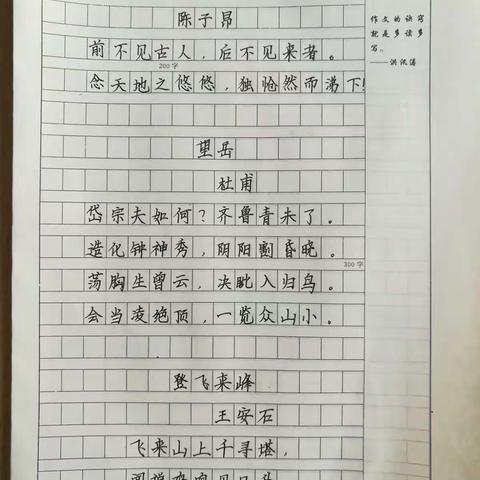 陈子昂
前不见古人，后不见来者。
200字
念天地之悠悠，独怆然而涕下!
望岳
杜甫
岱宗夫如何？齐鲁青未了。
造化钟神秀，阴阳割昏晓。
300字
荡胸生曾云，决眦入归鸟。
会当凌绝顶，一览众山小。
登飞来峰
王安石
飞来山上千寻塔，
闻说鸡鸣见日升
作文的诀窍
就是多读多
写。
——洪汛涛